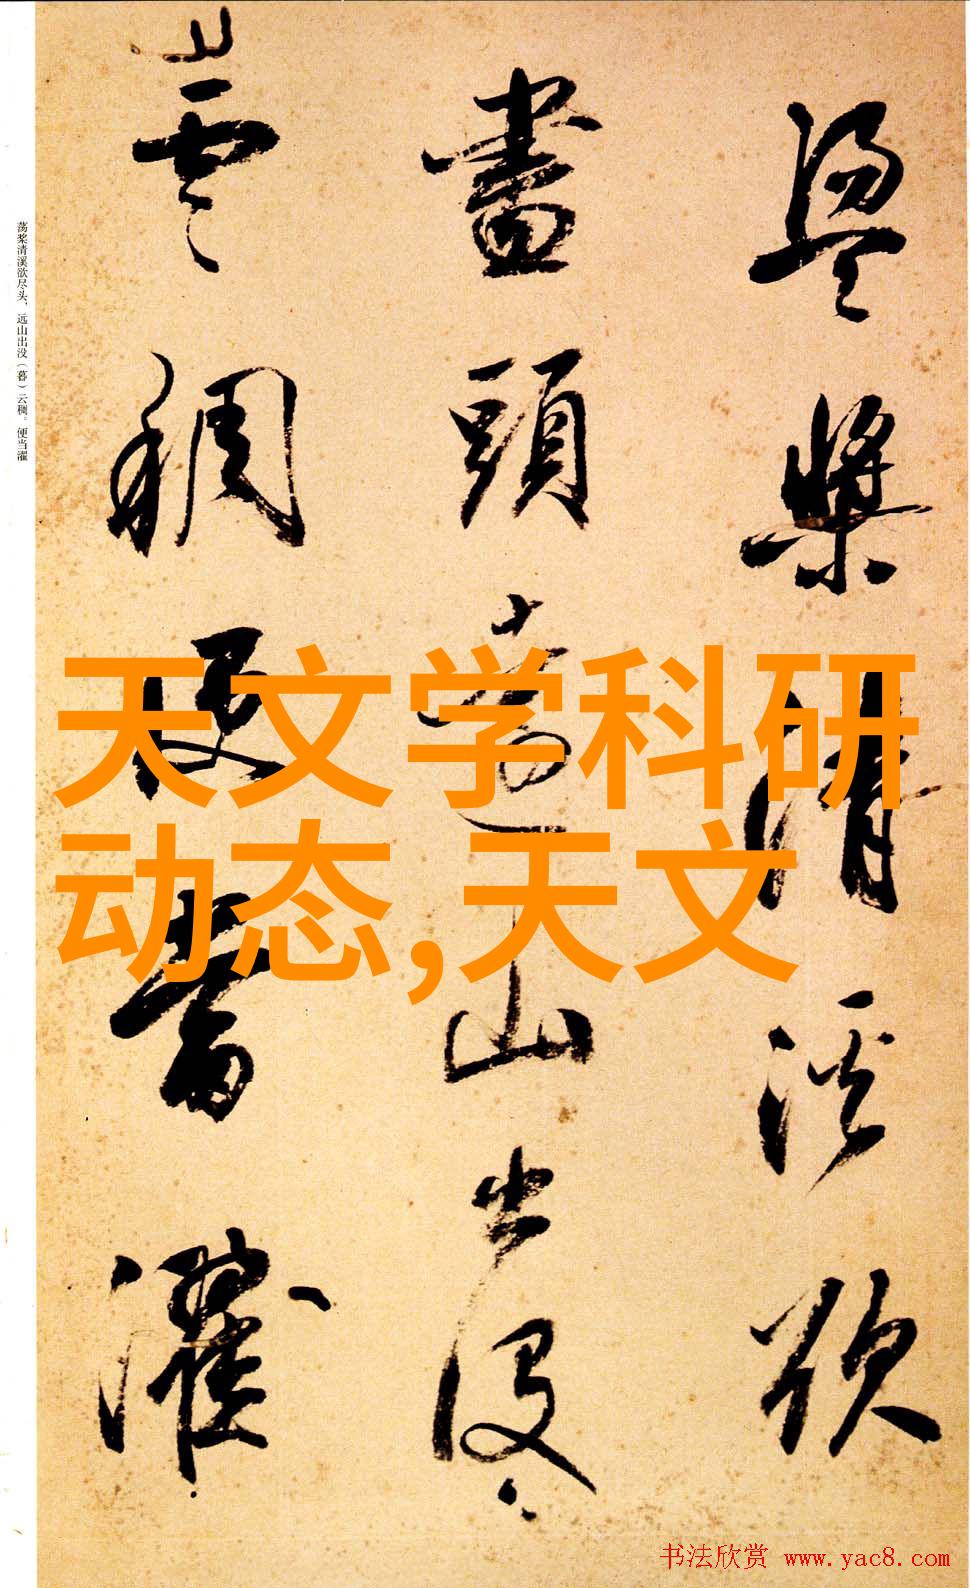 盪槳清溪欲
盡頭遠山出没
雲稠便當濯
荡桨清溪欲尽头，远山出没（暮）云稠。便当濯
天文学科研
动态,天文
书法欣赏 www.yac8.com